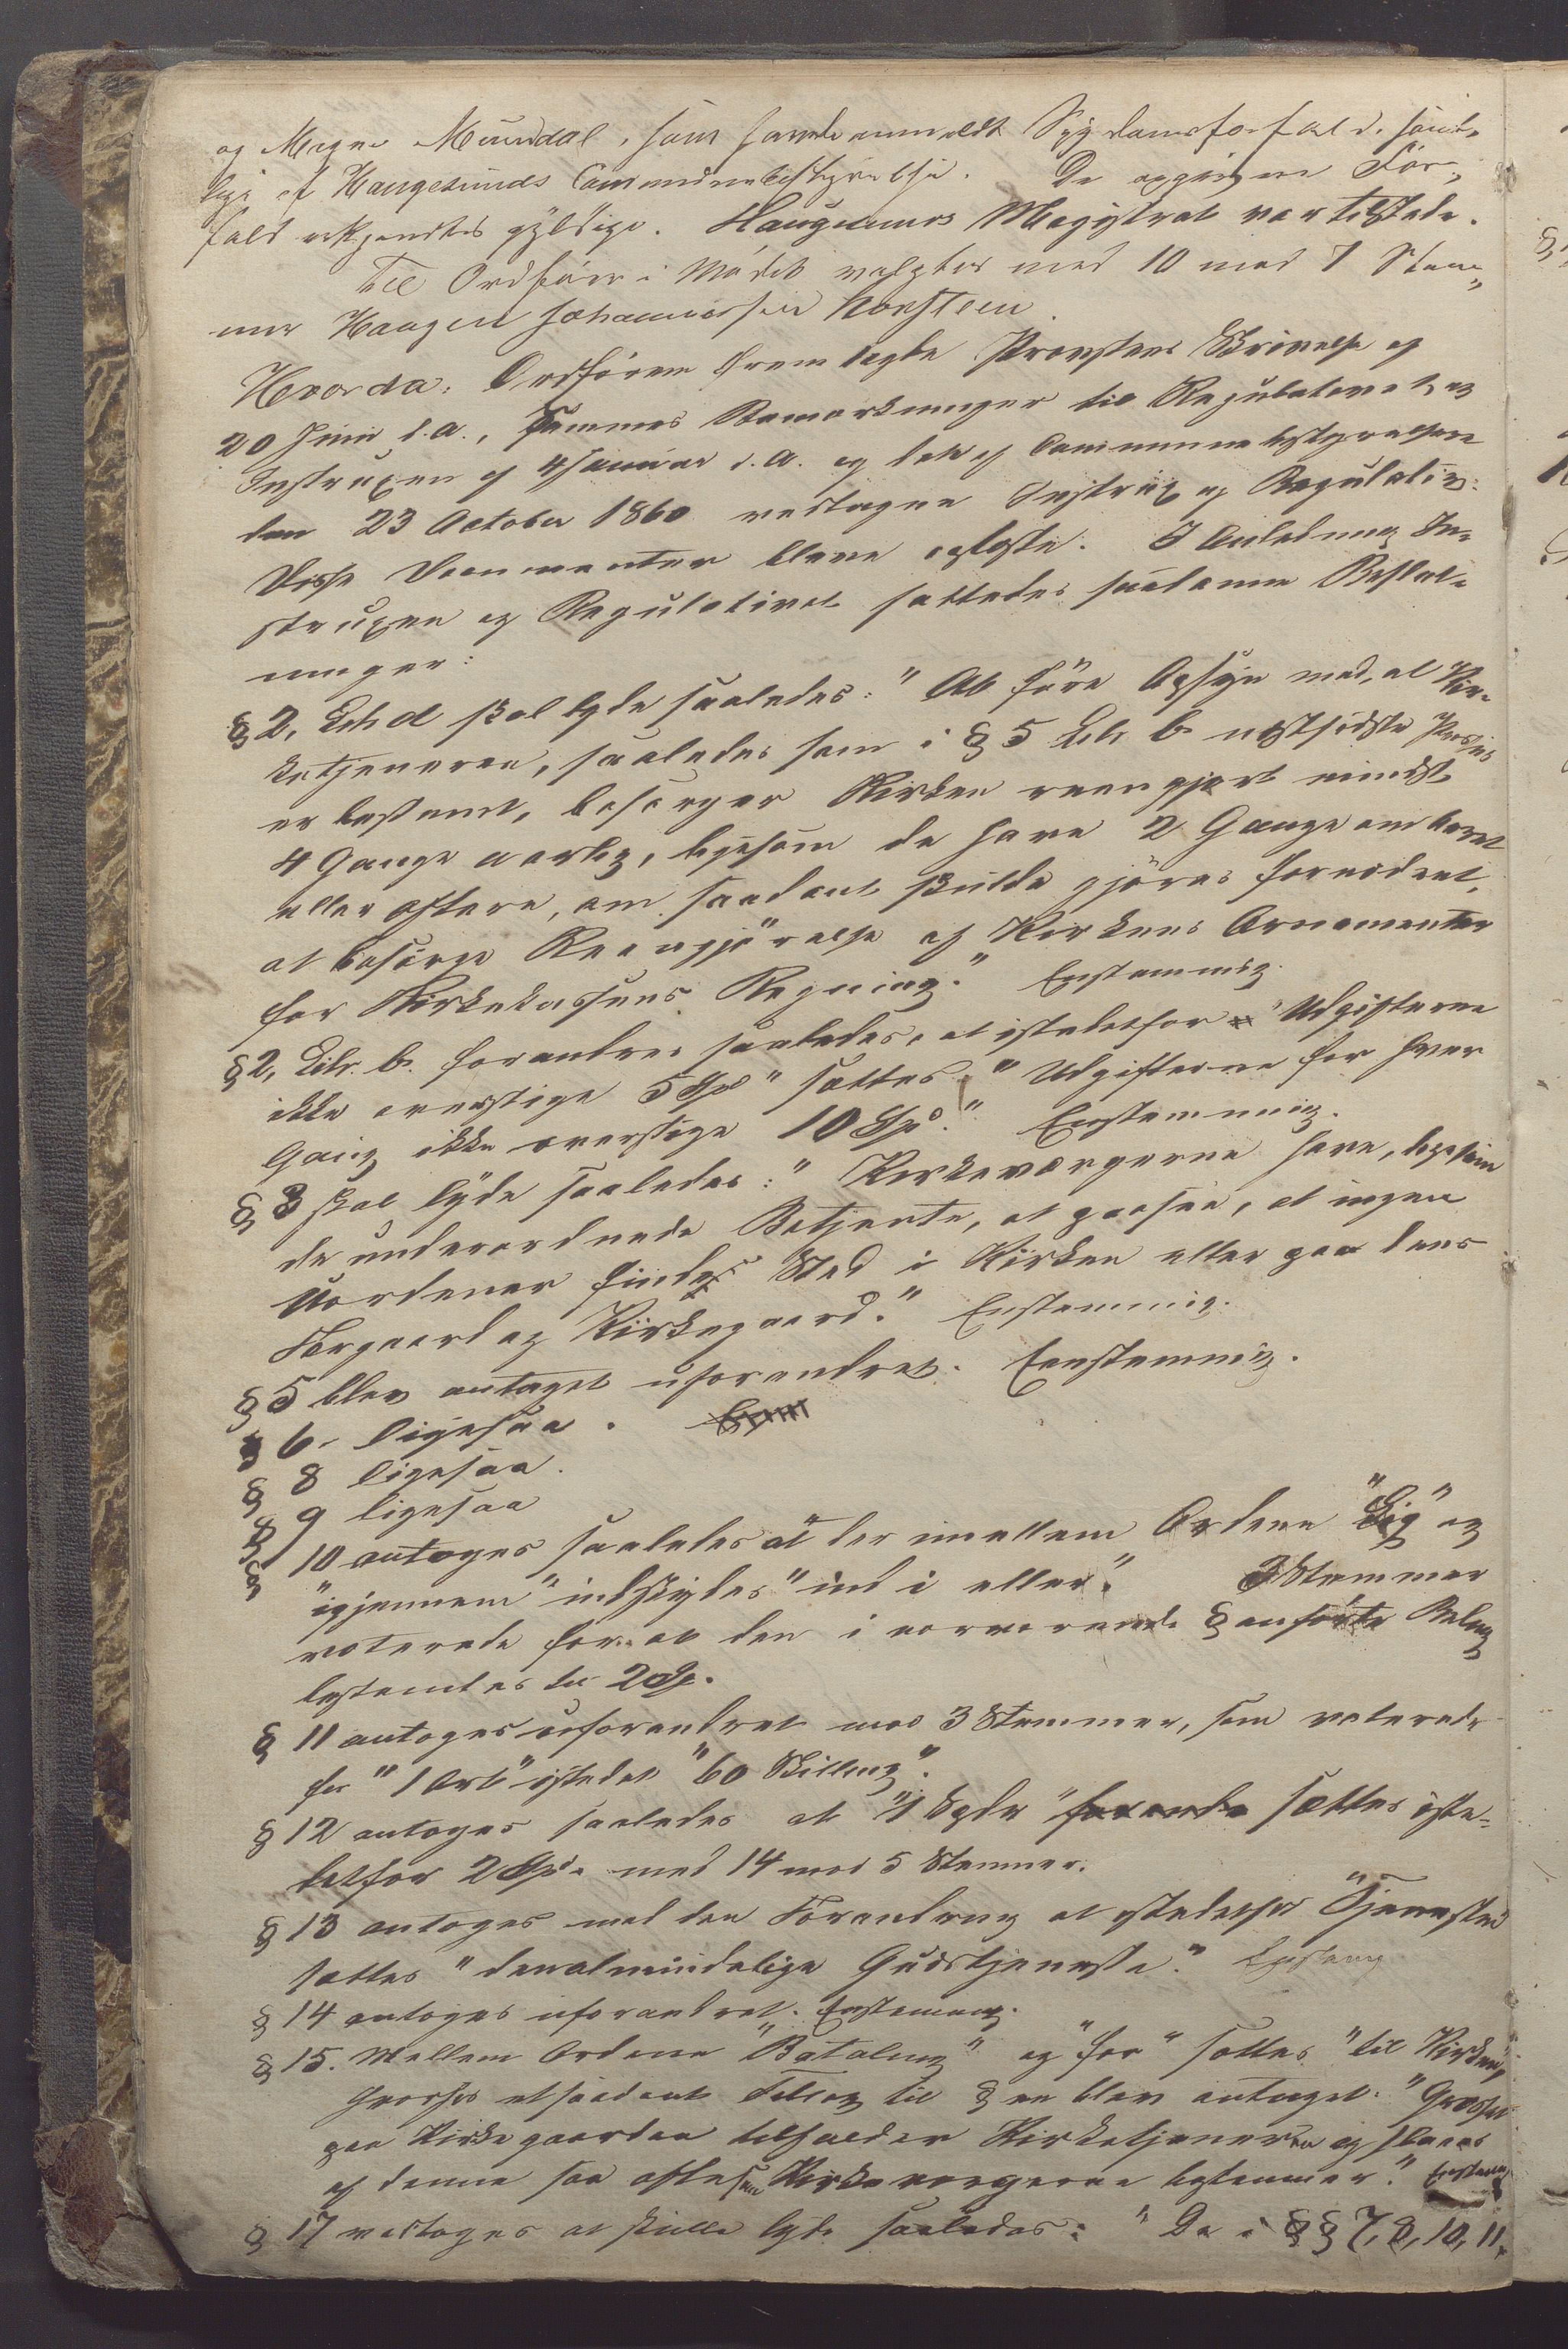 og Magne Mundal, som havde anmeldt Sygdomsforfald, samt-
lige af Haugesunds Communebestyrelse. De opgivne For-
fald erkjendtes gyldige. Haugesunds Magistrat var tilstede.
Til Ordfører i Mødet valgtes med 10 mod 7 Stem-
mer Haagen Johannessen
Hvorda: Ordføreren fremlagde Provstens Skrivelse af
20 Juni d. A., sammes Bemærkninger til Regulativet og
Instruxen af 4 Januar d. A. og det af Communebestyrelsen
den 23 October 1860 vedtagne Instrux og Regulativ.
Disse Documenter bleve oplæste. I Anledning In-
struxen og Regulativet fattedes saadanne Beslut-
ninger:
§ 2, Litr d skal lyde saaledes: "At føre Opsyn med, at Kir-
ketjeneren, saaledes som i § 5 Litr b næstsidste Passus
er bestemt, besørger Kirken reengjort mindst
4 Gange aarlig, ligesom de have 2 Gange om Aaret
eller oftere, om saadant skulde gjøres fornødent,
at besørge Reengjørelse af Kirkens Ornamenter
for Kirkekassens Regning." Enstemmig.
§ 2, Litr. b. forandres saaledes, at istedetfor "Udgifterne
ikke overstige 5 Spd" sættes: "Udgifterne for hver
Gang ikke overstige 10 Spd." Enstemmig.
§ 3 skal lyde saaledes: "Kirkeværgerne have, ligesom
de underordnede Betjente, at paasee, at ingen
Uordener finde Sted i Kirken eller paa dens
Forgaard og Kirkegaard." Enstemmig.
§ 5 blev antaget uforandret. Eenstemmig.
§ 6 ligesaa.
§ 8 ligesaa.
§ 9 ligesaa
§ 10 antoges saaledes at der imellem Ordene "Lig" og
"igjennem" indskydes "ind i eller". 3 Stemmer
voterede for at den i nærværende § anførte Betaling
bestemtes til 2 Sp.
§ 11 antoges uforandret mod 3 Stemmer, som voterede
for "1 Ort" istedet "60 Skilling".
§ 12 antoges saaledes at "1 Spdr" sættes iste-
detfor 2 Spd. med 14 mod 5 Stemmer.
§ 13 antoges med den Forandring at istedetfor "Tjenesten
sættes "den almindelige Gudstjeneste." Enstemg
§ 14 antoges uforandret. Enstemmig.
§ 15. Mellem Ordene "Betaling" og "for" sættes "til Kirken",
hvorhos etsaadant Tillæg til §en blev antaget: "Græsset
paa Kirkegaarden tilfalder Kirketjeneren og slaaes
af denne saa ofte som Kirkeværgerne bestemmer." Enstemg
§ 17 vedtoges at skulle lyde saaledes: "De i §§ 7, 8, 10, 11,